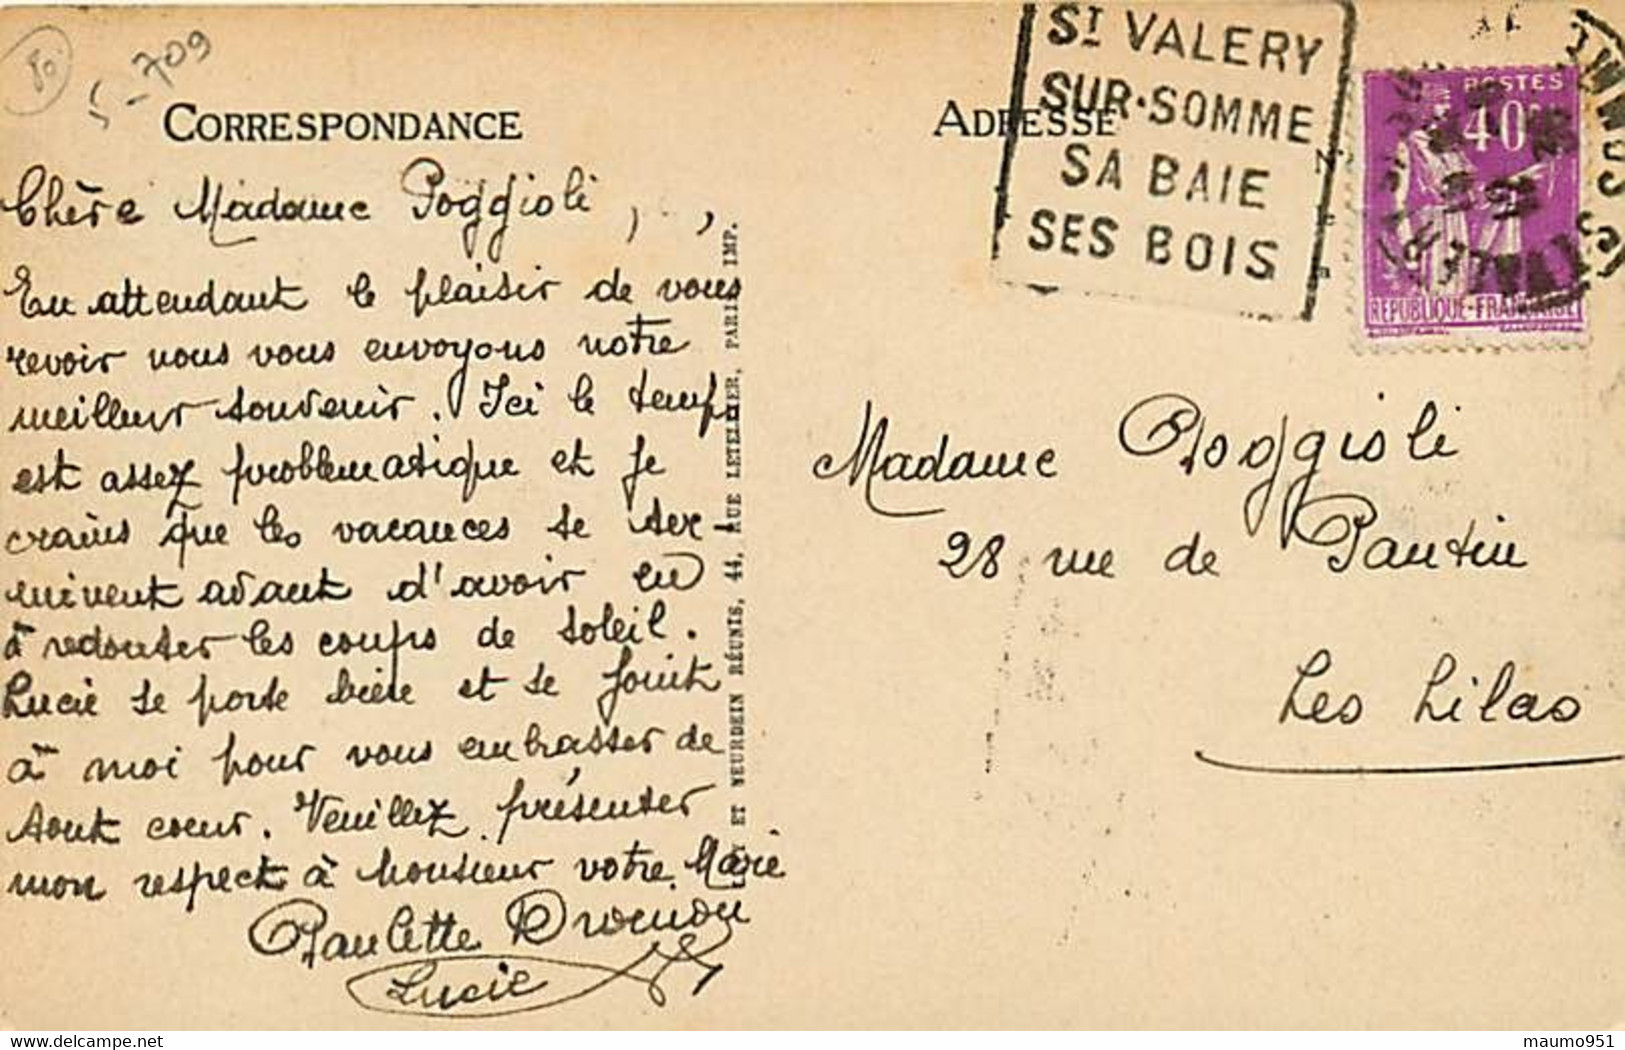 80
5-709
CORRESPONDANCE
Chère Madame Poggioli,
En attendant le plaisir de vous
revoir nous vous envoyons notre
meilleur souvenir. Ici le temps
est assez problematique et je
crains que les vacances se ter-
minent avant d'avoir eu
à redouter les coups de soleil.
Lucie se porte bien et se joint
à moi pour vous embrasser de
tout coeur. Veuillez présenter
mon respect à Monsieur votre Mari
Paulette
Lucie
ET NEURDEIN RÉUNIS, 44, RUE LETELLIER, PARIS IMP.
ADRESSE
ST VALERY
SUR-SOMME
SA BAIE
SES BOIS
POSTES
40
REPUBLIQUE-FRANÇAISE
ST VALERY S SOMME
Madame Poggioli
28 rue de Pantin
Les Lilas
maumo951